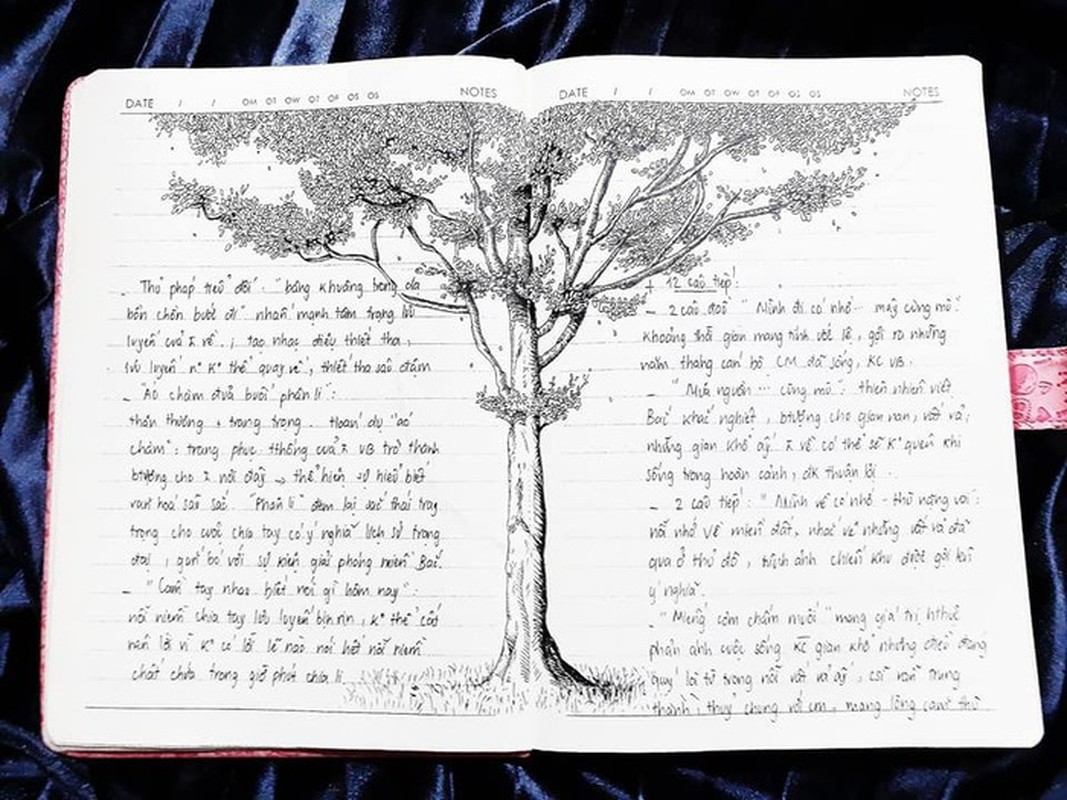 DATE / / OM OT OW OT OF OS OS NOTES
- Thủ pháp trêu đối : "bâng khuâng trong dạ
bồn chồn bước đi" nhấn mạnh tâm trạng lưu
luyến của I về . ; tạo nhạc điệu thiết tha ,
lưu luyến n° K° thể quay về , thiết tha sâu đậm
- "Áo chàm đưa buổi phân li" :
thân thương + trang trọng . Hoán dụ "áo
chàm" : trang phục tthống của I VB trở thành
btượng cho I nơi đây → thể hiện sự hiểu biết
văn hoá sâu sắc . "Phân li" đem lại sắc thái tray
trọng cho cuộc chia tay có ý nghĩa lịch sử trong
đại , gắn bó với sự kiện giải phóng miền Bắc .
- "Cầm tay nhau biết nói gì hôm nay" :
nỗi niềm chia tay lưu luyến bịn rịn , K° thể cất
nên lời vì K° có lời lẽ nào nói hết nỗi niềm
chất chứa trong giờ phút chia li
DATE / / OM OT OW OT OF OS OS NOTES
+ 12 câu tiếp :
- 2 câu đầu " Mình đi có nhớ ... mây cùng mù" :
Khoảng thời gian mang tính ước lệ , gợi ra những
năm tháng cán bộ CM đã sống , KC VB .
- "Mưa nguồn ... cùng mù" : thiên nhiên Việt
Bắc khắc nghiệt , btượng cho gian nan , vất vả ;
những gian khổ ấy I về có thể sẽ K° quên khi
sống trong hoàn cảnh , đk thuận lợi .
- 2 câu tiếp : " Mình về có nhớ - thù nặng vai" :
nỗi nhớ về miền đất , nhắc về những vất vả đã
qua ở thủ đô , hình ảnh chiến khu được gợi khi
ý nghĩa .
- "Miếng cơm chấm muối" mang giá trị hthực
phản ánh cuộc sống KC gian khổ nhưng chịu đựng
quý lại từ trong nỗi vất vả ấy , csĩ vẫn trung
thành , thuỷ chung với cm , mang lòng căm thù